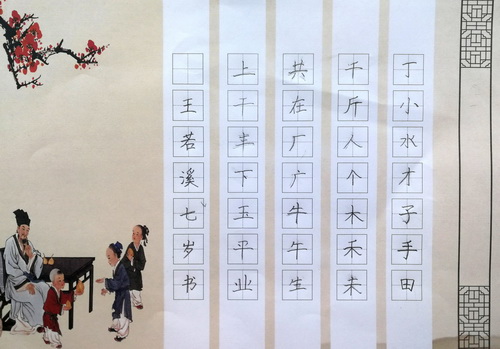 丁小水才子手田
千斤人个木禾未
共在厂广牛午生
上干下玉平业
王若溪七岁书